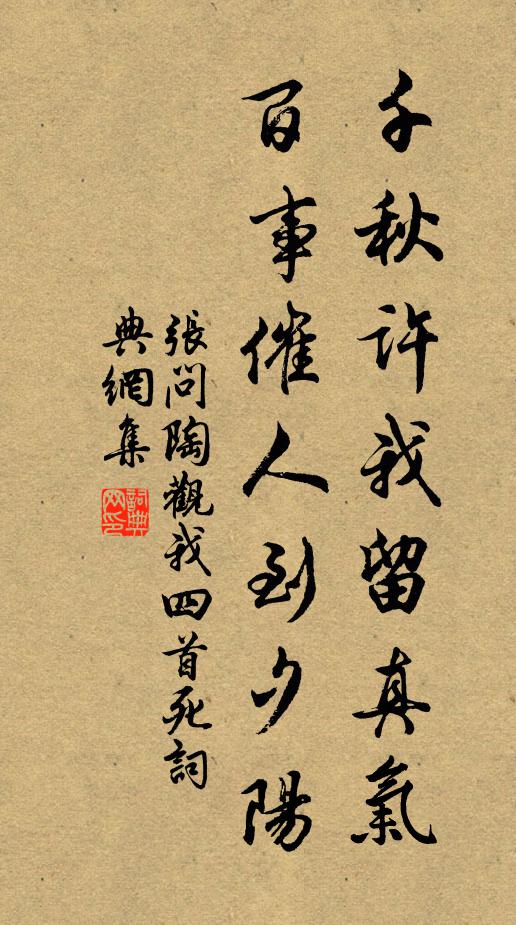 千秋許我留真氣
百事催人到夕陽
張問陶觀我四首死詞
典網集
詞典
网印